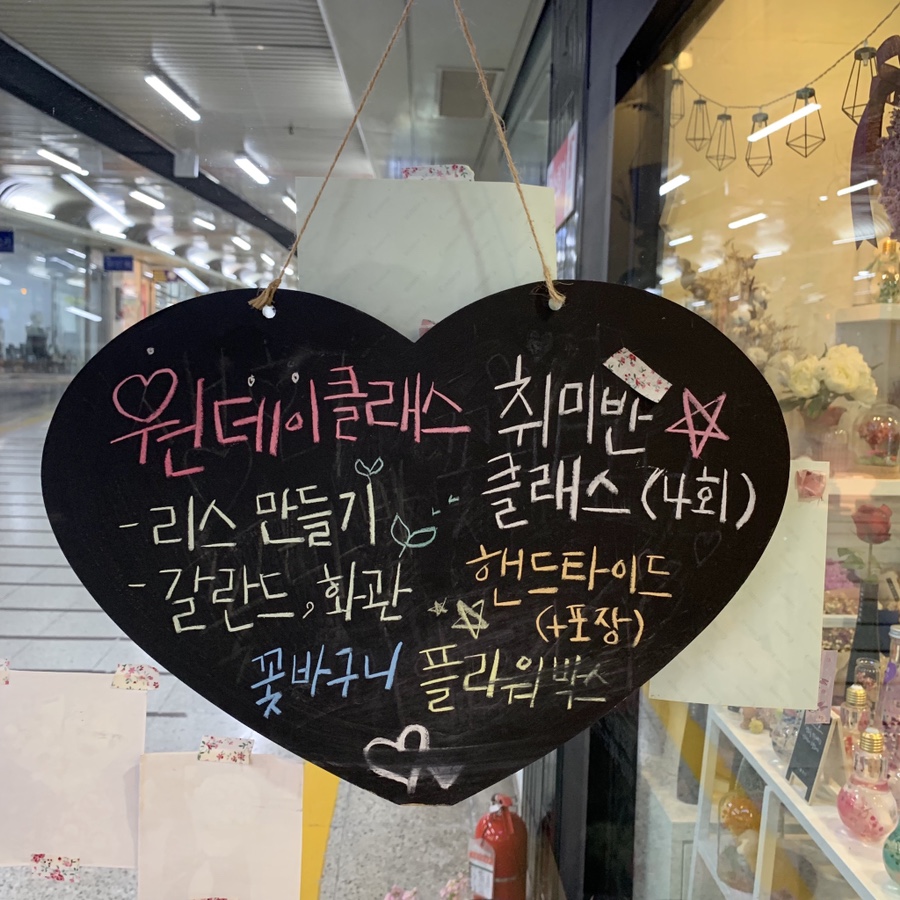 원데이클래스
- 리스 만들기
- 갈란드, 화관
취미반
클래스 (4회)
핸드타이드
(+포장)
꽃바구니 플라워박스